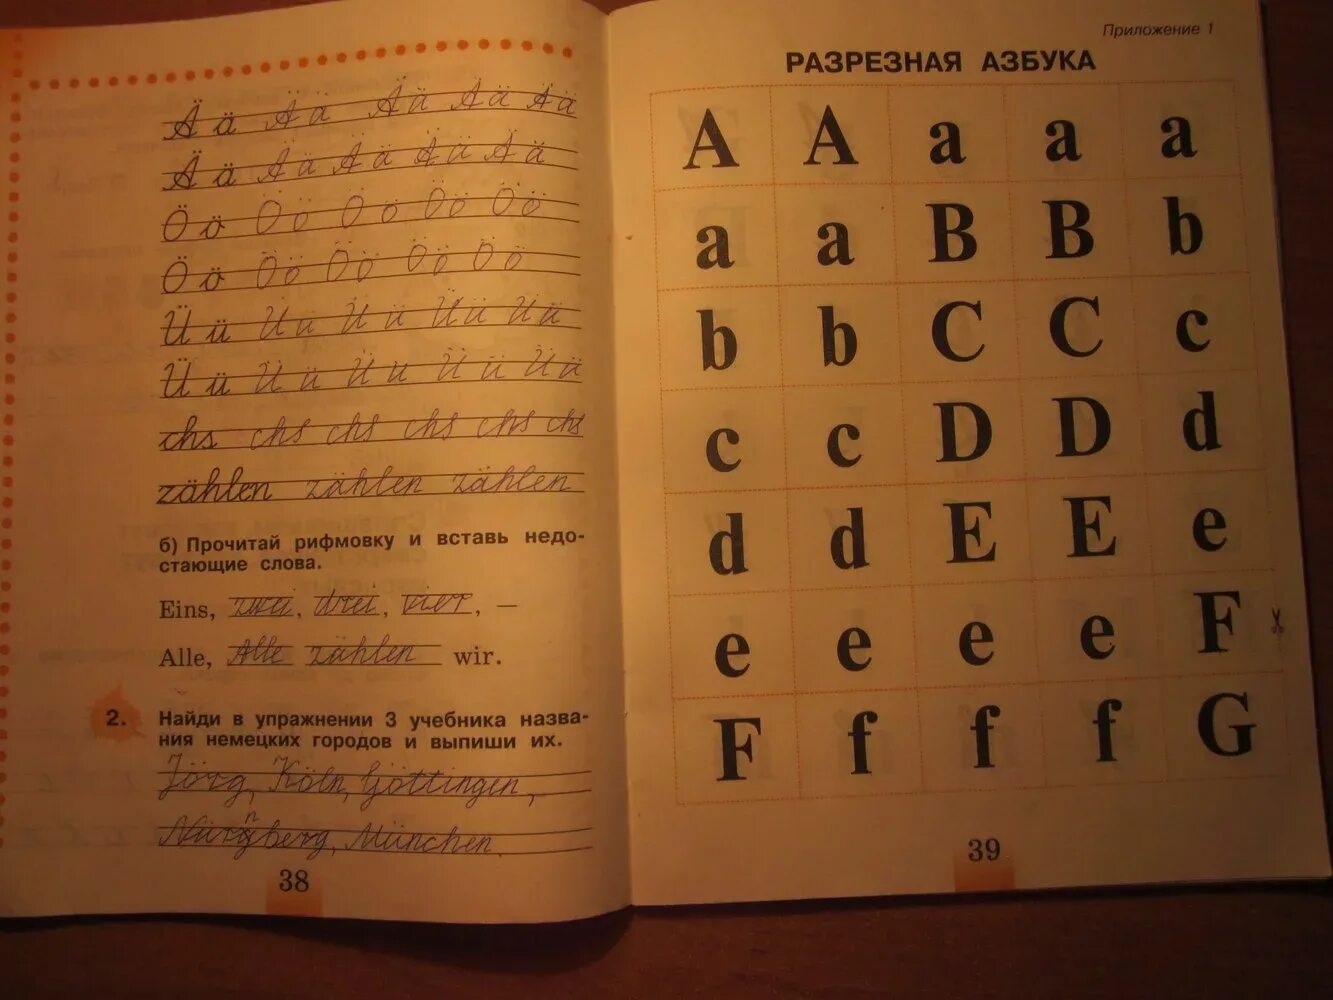 Ä ä Ä ä Ä ä Ä ä Ä ä
Ä ä Ä ä Ä ä Ä ä Ä ä
Ö ö Ö ö Ö ö Ö ö Ö ö
Ö ö Ö ö Ö ö Ö ö Ö ö
Ü ü Ü ü Ü ü Ü ü Ü ü
Ü ü Ü ü Ü ü Ü ü Ü ü
chs chs chs chs chs chs
zählen zählen zählen
б) Прочитай рифмовку и вставь недо-
стающие слова.
Eins, zwei, drei, vier, –
Alle, Alle zählen wir.
2. Найди в упражнении 3 учебника назва-
ния немецких городов и выпиши их.
Jörg, Köln, Göttingen,
Nürnberg, München
38
Приложение 1
РАЗРЕЗНАЯ АЗБУКА
A A a a a
a a B B b
b b C C c
c c D D d
d d E E e
e e e e F
F f f f G
39